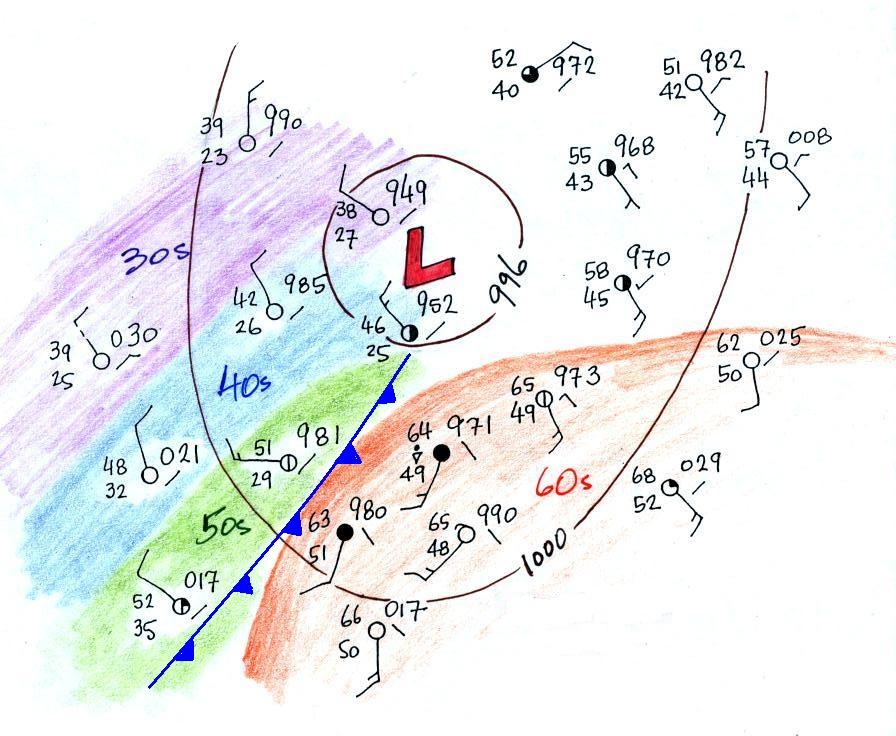 52 972
40
51 982
42
39 990
23
55 968
43
57 008
44
38 949
27
30s
L
42 985
26
46 952
25
996
58 970
45
39 030
25
40s
62 025
50
65 973
49
51 981
29
64 971
49
48 021
32
60s
68 029
52
50s
63 980
51
65 990
48
1000
52 017
35
66 017
50